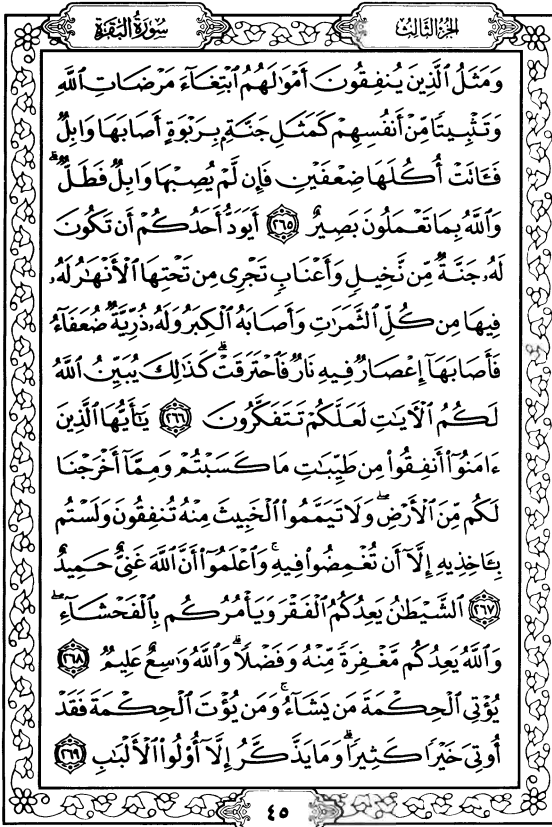 سُورَةُ البَقَرَةِ
الجُزْءُ الثَّالِثُ
وَمَثَلُ ٱلَّذِينَ يُنفِقُونَ أَمْوَٰلَهُمُ ٱبْتِغَآءَ مَرْضَاتِ ٱللَّهِ
وَتَثْبِيتًا مِّنْ أَنفُسِهِمْ كَمَثَلِ جَنَّةٍۭ بِرَبْوَةٍ أَصَابَهَا وَابِلٌ
فَـَٔاتَتْ أُكُلَهَا ضِعْفَيْنِ فَإِن لَّمْ يُصِبْهَا وَابِلٌ فَطَلٌّ ۗ
وَٱللَّهُ بِمَا تَعْمَلُونَ بَصِيرٌ ﴿٢٦٥﴾ أَيَوَدُّ أَحَدُكُمْ أَن تَكُونَ
لَهُۥ جَنَّةٌ مِّن نَّخِيلٍ وَأَعْنَابٍ تَجْرِى مِن تَحْتِهَا ٱلْأَنْهَٰرُ لَهُۥ
فِيهَا مِن كُلِّ ٱلثَّمَرَٰتِ وَأَصَابَهُ ٱلْكِبَرُ وَلَهُۥ ذُرِّيَّةٌ ضُعَفَآءُ
فَأَصَابَهَآ إِعْصَارٌ فِيهِ نَارٌ فَٱحْتَرَقَتْ ۗ كَذَٰلِكَ يُبَيِّنُ ٱللَّهُ
لَكُمُ ٱلْـَٔايَٰتِ لَعَلَّكُمْ تَتَفَكَّرُونَ ﴿٢٦٦﴾ يَٰٓأَيُّهَا ٱلَّذِينَ
ءَامَنُوٓا۟ أَنفِقُوا۟ مِن طَيِّبَٰتِ مَا كَسَبْتُمْ وَمِمَّآ أَخْرَجْنَا
لَكُم مِّنَ ٱلْأَرْضِ ۖ وَلَا تَيَمَّمُوا۟ ٱلْخَبِيثَ مِنْهُ تُنفِقُونَ وَلَسْتُم
بِـَٔاخِذِيهِ إِلَّآ أَن تُغْمِضُوا۟ فِيهِ ۚ وَٱعْلَمُوٓا۟ أَنَّ ٱللَّهَ غَنِىٌّ حَمِيدٌ
﴿٢٦٧﴾ ٱلشَّيْطَٰنُ يَعِدُكُمُ ٱلْفَقْرَ وَيَأْمُرُكُم بِٱلْفَحْشَآءِ ۖ
وَٱللَّهُ يَعِدُكُم مَّغْفِرَةً مِّنْهُ وَفَضْلًا ۗ وَٱللَّهُ وَٰسِعٌ عَلِيمٌ ﴿٢٦٨﴾
يُؤْتِى ٱلْحِكْمَةَ مَن يَشَآءُ ۚ وَمَن يُؤْتَ ٱلْحِكْمَةَ فَقَدْ
أُوتِىَ خَيْرًا كَثِيرًا ۗ وَمَا يَذَّكَّرُ إِلَّآ أُو۟لُوا۟ ٱلْأَلْبَٰبِ ﴿٢٦٩﴾
٤٥